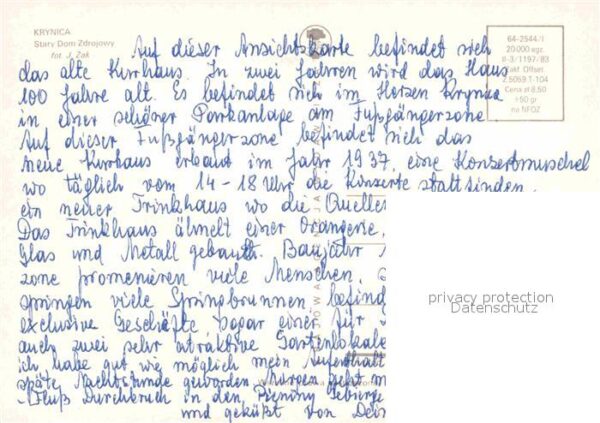 KRYNICA
Stary Dom Zdrojowy
fot J. Żak
64-2544/I
20.000 egz.
II-3/1197/83
Zakł. Offset.
Z.5069 T-104
Cena zł 8,50
+50 gr
na NFOZ
Auf dieser Ansichtskarte befindet sich
das alte Kurhaus. In zwei Jahren wird das Haus
100 Jahre alt. Es befindet sich im Herzen Krynica
in einer schöner Parkanlage am Fußgängerzone
Auf dieser Fußgängerzone befindet sich das
neue Kurhaus erbaut im Jahr 1937, eine Konzertmuschel
wo täglich vom 14-18 Uhr die Konzerte stattfinden,
ein neuer Trinkhaus wo die Quellen
Das Trinkhaus ähmelt einer Orangerie,
Glas und Metall gebauth. Baujahr
zone promenieren viele Menschen,
springen viele Springbrunnen befind
exclusive Geschäfte sogar einer für
auch zwei sehr atraktive Gartenlokale
ich habe gut wie möglich mein Aufenthalt
späte Nachtstunde geworden Morgen geht m
Fluß Durchbruch in den Pieniny Gebirge
und geküßt von Dein
privacy protection
Datenschutz